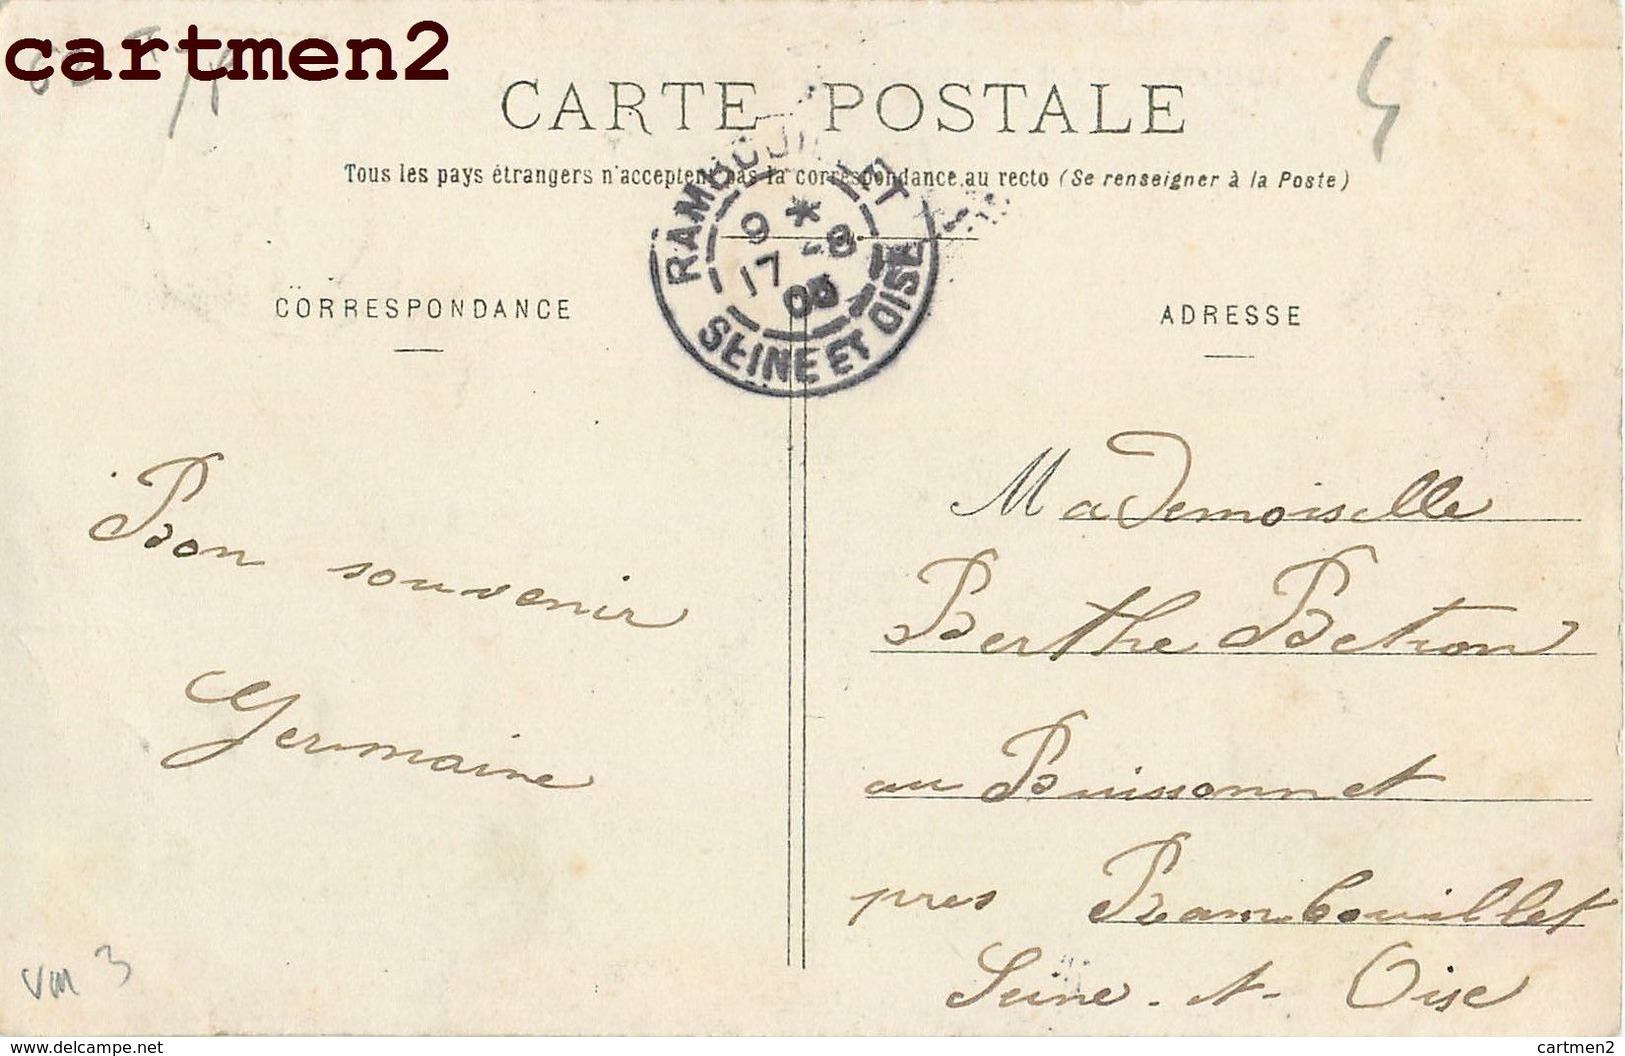 cartmen2
CARTE POSTALE
Tous les pays étrangers n'acceptent pas la correspondance au recto (Se renseigner à la Poste)
RAMBOUILLET
9 *
17 -8
SEINE ET OISE
CORRESPONDANCE
ADRESSE
Bon souvenir
Germaine
Mademoiselle
Berthe Betron
au Buissonnet
pres Rambouillet
Seine-et-Oise
4
VM 3
www.delcampe.net
cartmen2